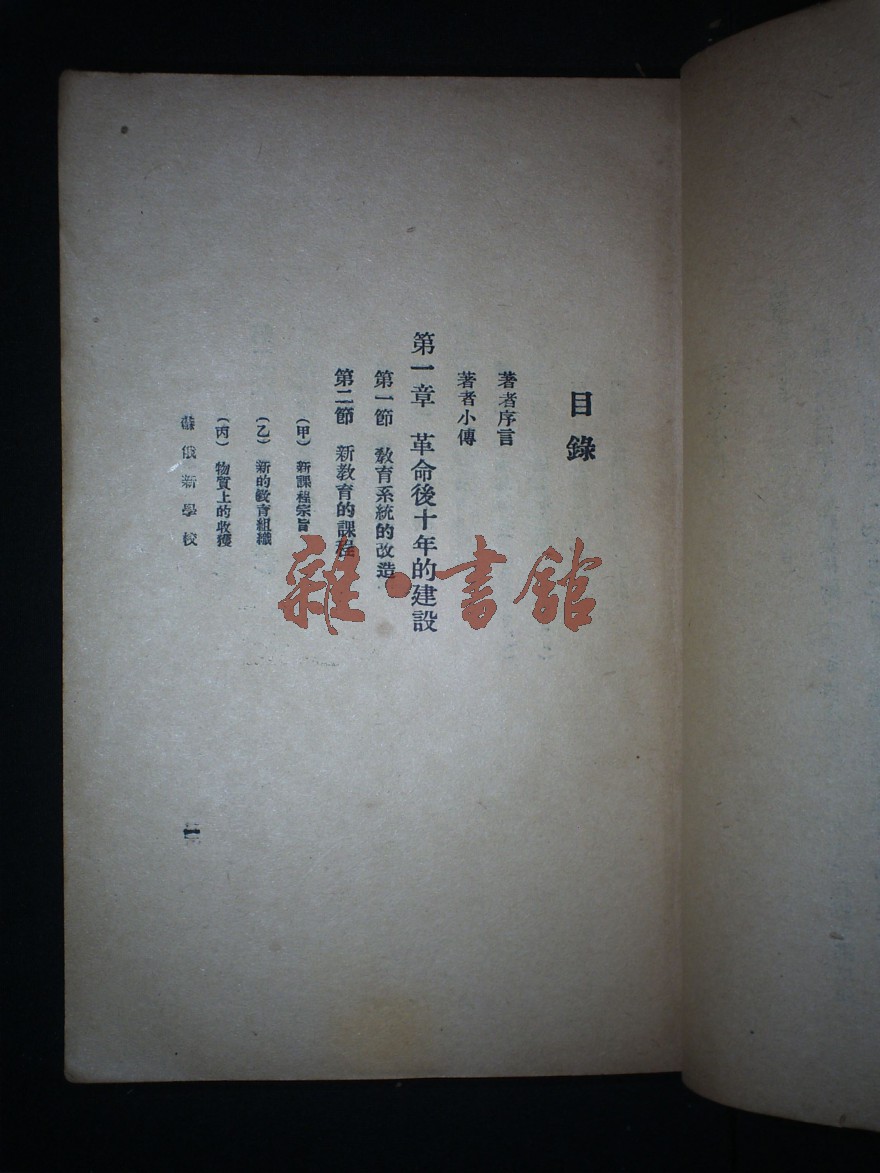 目錄
著者序言
著者小傳
第一章 革命後十年的建設
第一節 教育系統的改造
第二節 新教育的課程
（甲）新課程宗旨
（乙）新的教育組織
（丙）物質上的收獲
蘇俄新學校
雜·書館